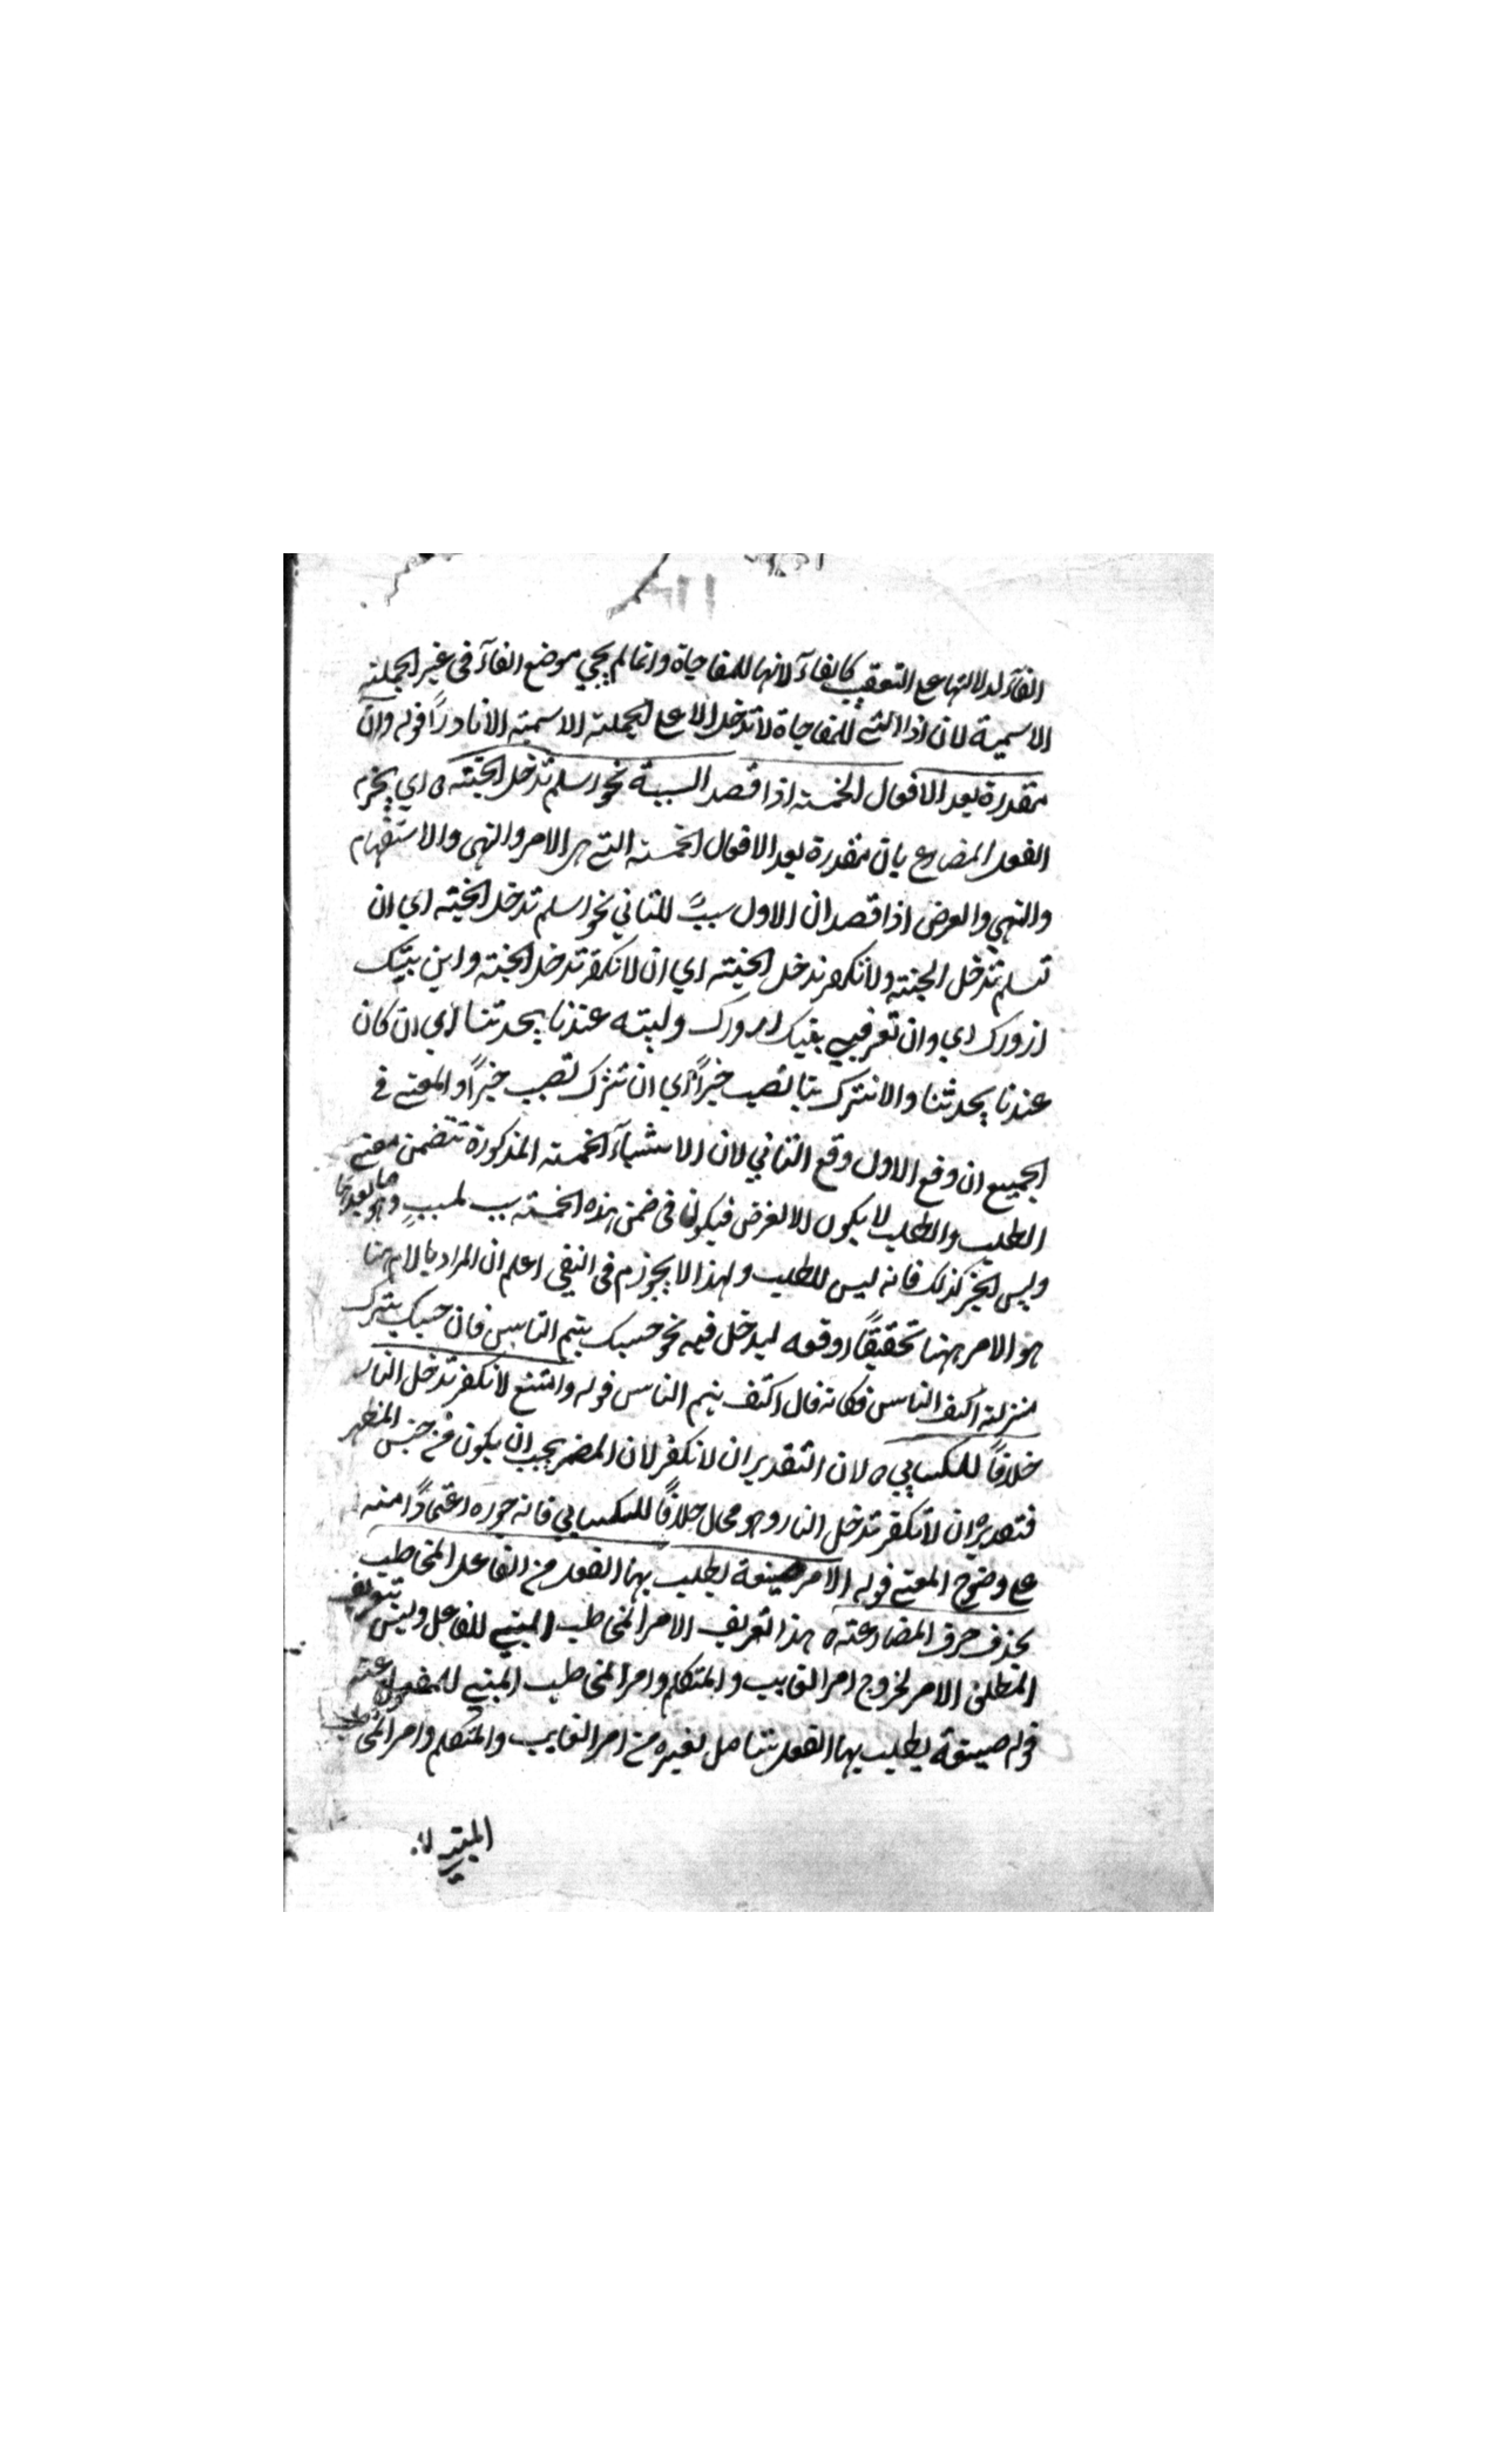 الفآء لدلالتها على التعقيب كالفاء لانها للمفاجاة وانما لم يجي موضع الفآء في غير الجملة
الاسمية لان اذا التي للمفاجاة لا تدخل الا على الجملة الاسمية الا نادرًا قوله وان
مقدرة بعد الافعال الخمسة اذا قصد السببية نحو اسلم تدخل الجنة ه اي يجزم
الفعل المضارع بان مقدرة بعد الافعال الخمسة التي هي الامر والنهي والاستفهام
والنهي والعرض اذا قصد ان الاول سببً للثاني نحو اسلم تدخل الجنة اي ان
تسلم تدخل الجنة ولا تكفر تدخل الجنة اي ان لا تكفر تدخل الجنة واين بيتك
ازورك اي وان تعرفني بيتك ازورك وليته عندنا يحدثنا اي ان كان
عندنا يحدثنا والا تترك بنا تصب خيرًا اي ان تترك تصب خيرًا والمعنى في
الجميع ان وقع الاول وقع الثاني لان الاشيآء الخمسة المذكورة تتضمن معنى
الطلب والطلب لا يكون الا لغرض فيكون في ضمن هذه الخمسة سبب لمسببٍ وهو ما بعدها
وليس الخبر كذلك فانه ليس للطلب ولهذا لا يجوزم في النفي اعلم ان المراد بالامر هنا
هو الامر ههنا تحقيقًا اوقعه ليدخل فيه نحو حسبك ينم الناس فان حسبك ينزل
منزلة اكفف الناس فكانه قال اكفف ينم الناس قوله وامتنع لا تكفر تدخل النار
خلافًا للكسايي ه لان التقدير ان لا تكفر لان المضمر يجب ان يكون من جنس المظهر
فتقديره ان لا تكفر تدخل النار وهو محال خلافًا للكسايي فانه جوزه اعتمادًا منه
على وضوح المعنى قوله الامر صيغة يطلب بها الفعل من الفاعل المخاطب
بحذف حرف المضارعة ه هذا تعريف الامر المخاطب المبني للفاعل وليس تتعريف
المطلق الامر لخروج امر الغايب والمتكلم وامر المخاطب المبني للمفعول عنه
قوله صيغة يطلب بها الفعل شامل لغيره من امر الغايب والمتكلم وامر المخاطب